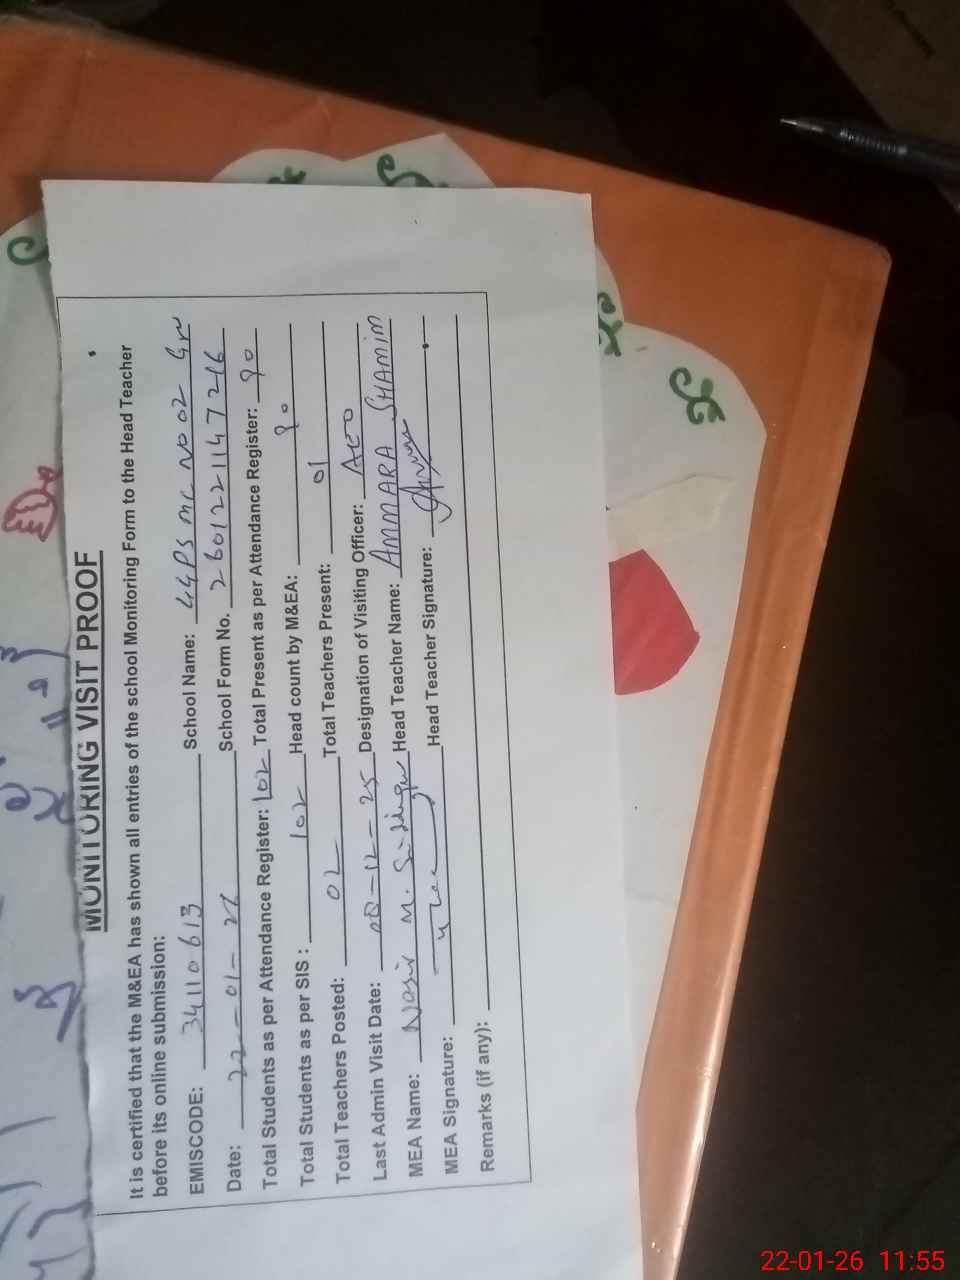 MONITORING VISIT PROOF
It is certified that the M&EA has shown all entries of the school Monitoring Form to the Head Teacher
before its online submission:
EMISCODE: 34110613 School Name: GGPS MC NO 02
Date: 22-01-26 School Form No. 2601221147216
Total Students as per Attendance Register: 102 Total Present as per Attendance Register: 90
Total Students as per SIS : 102 Head count by M&EA: 90
Total Teachers Posted: 02 Total Teachers Present: 01
Last Admin Visit Date: -12-25 Designation of Visiting Officer: AEO
MEA Name: Nasir M. Head Teacher Name: AMMARA SHAMIM
MEA Signature: Head Teacher Signature:
Remarks (if any):
22-01-26 11:55